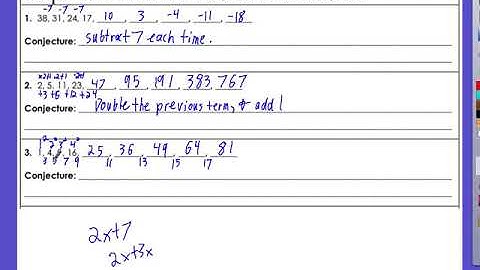 -7 -7 -7
1. 38, 31, 24, 17, 10, 3, -4, -11, -18
Conjecture: subtract 7 each time.
2. 2, 5, 11, 23, 47, 95, 191, 383, 767
+3 +6 +12 +24
Conjecture: Double the previous term, & add 1
1² 2² 3² 4²
3. 1, 4, 9, 16, 25, 36, 49, 64, 81
3 5 7 9 11 13 15 17
Conjecture:
2x+7
2x+3x